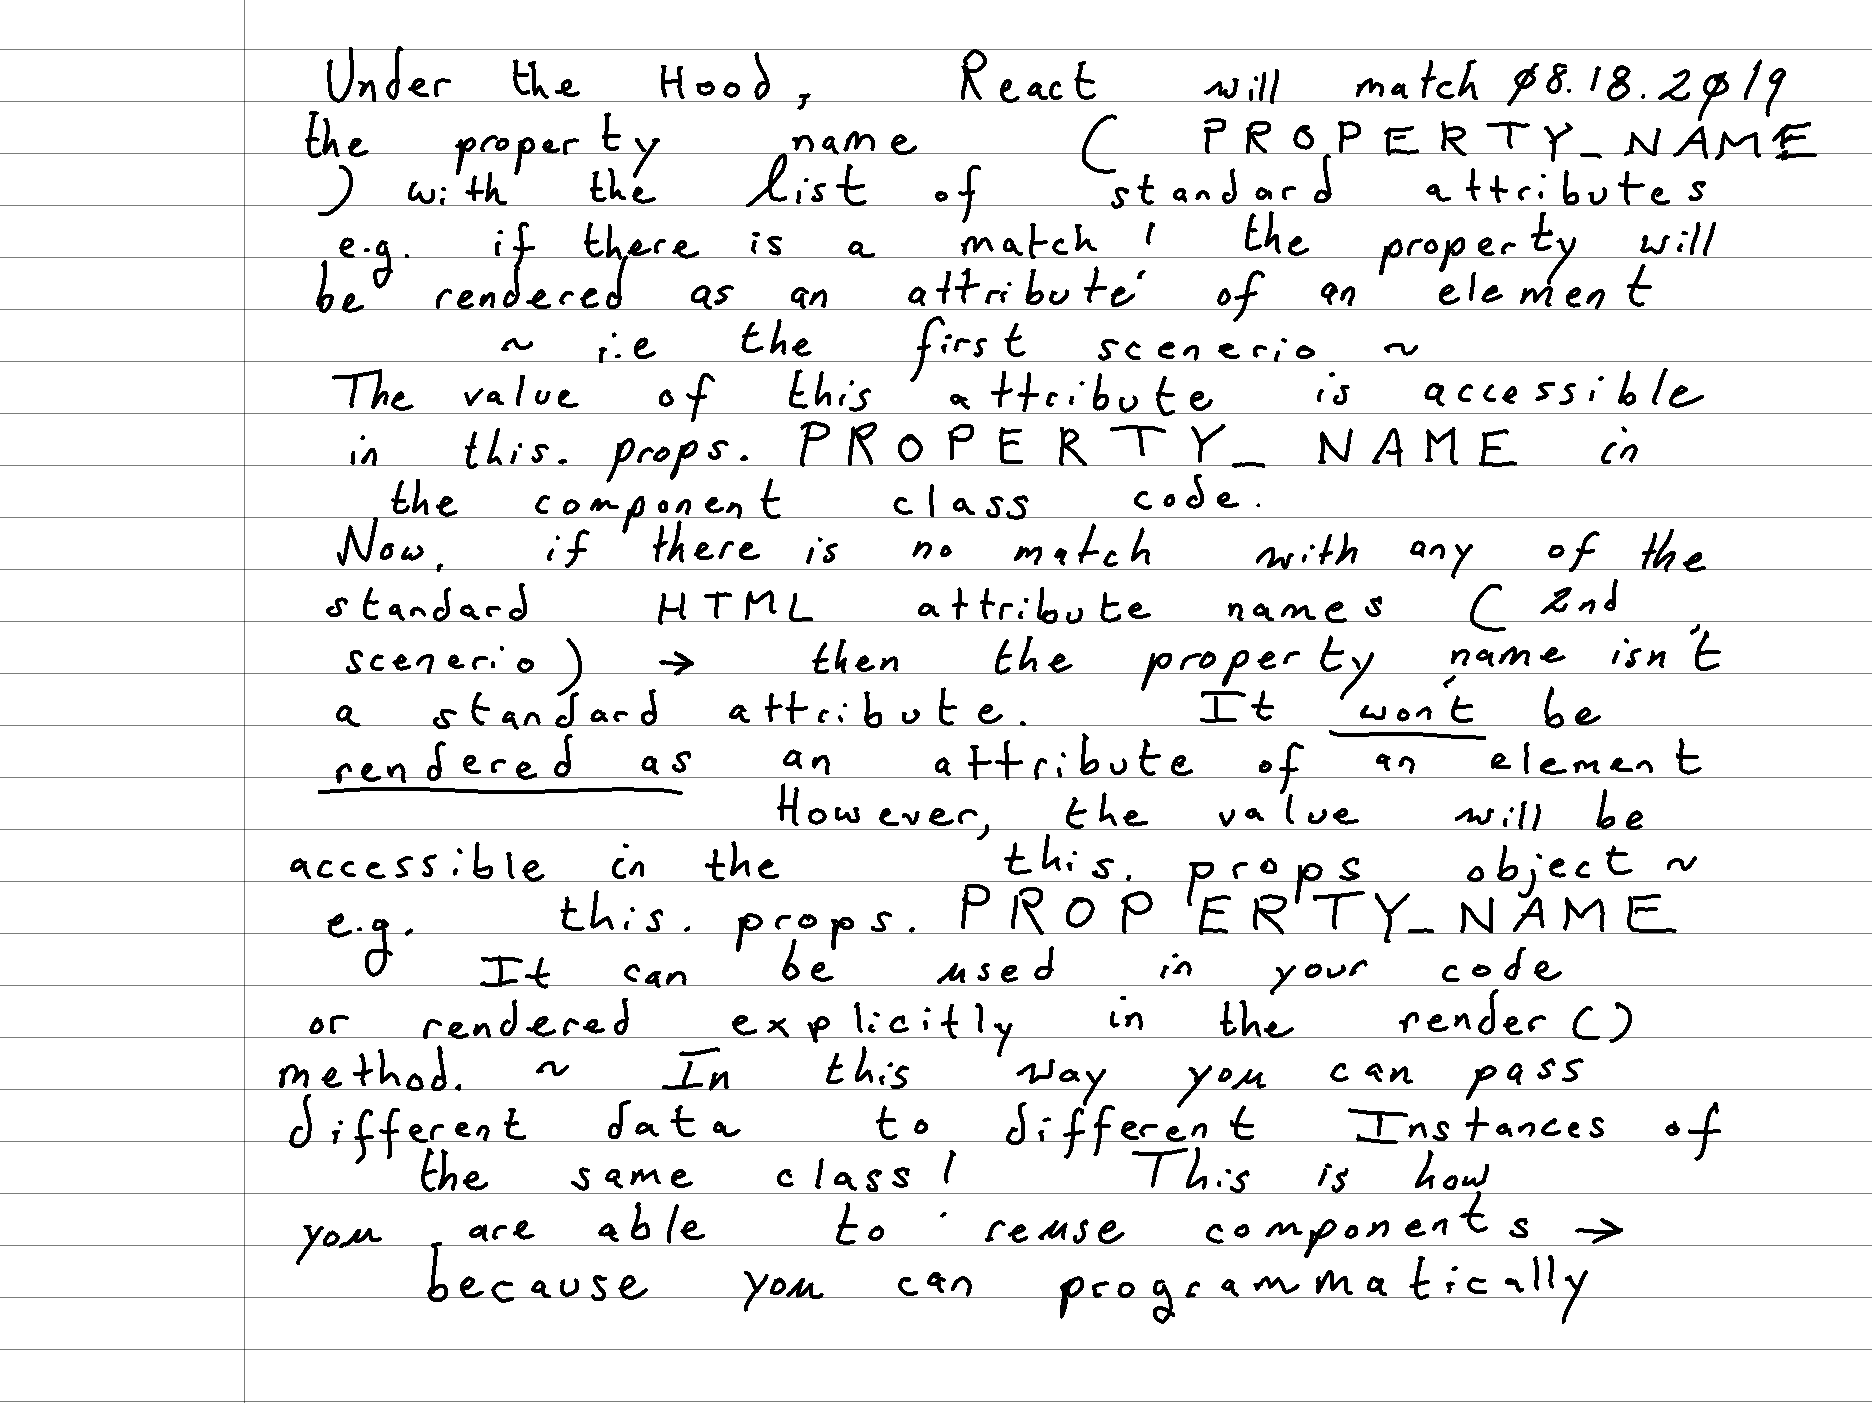 Under the Hood, React will match 08.18.2019
the property name ( PROPERTY_NAME
) with the list of standard attributes
e.g. if there is a match ! the property will
be rendered as an attribute of an element
~ i.e the first scenerio ~
The value of this attribute is accessible
in this. props. PROPERTY_ NAME in
the component class code.
Now, if there is no match with any of the
standard HTML attribute names ( 2nd
scenerio) → then the property name isn't
a standard attribute. It won't be
rendered as an attribute of an element
However, the value will be
accessible in the this. props object ~
e.g. this. props. PROPERTY_NAME
It can be used in your code
or rendered explicitly in the render ()
method. ~ In this way you can pass
different data to different Instances of
the same class! This is how
you are able to reuse components →
because you can programmatically